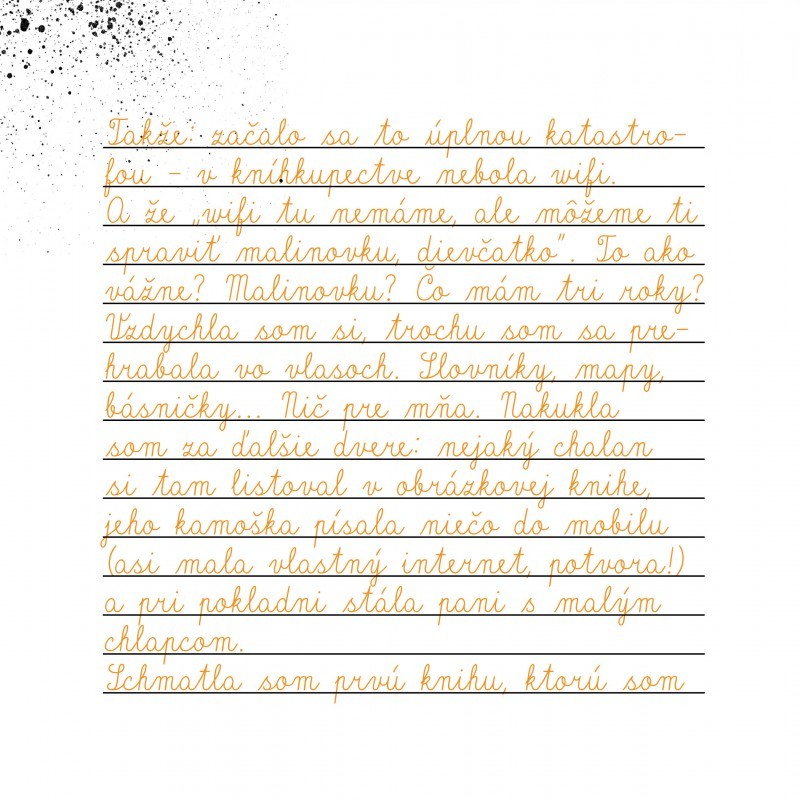 Takže: začalo sa to úplnou katastro-
fou - v kníhkupectve nebola wifi.
A že „wifi tu nemáme, ale môžeme ti
spraviť malinovku, dievčatko“. To ako
vážne? Malinovku? Čo mám tri roky?
Vzdychla som si, trochu som sa pre-
hrabala vo vlasoch. Slovníky, mapy,
básničky... Nič pre mňa. Nakukla
som za ďalšie dvere: nejaký chalan
si tam listoval v obrázkovej knihe,
jeho kamoška písala niečo do mobilu
(asi mala vlastný internet, potvora!)
a pri pokladni stála pani s malým
chlapcom.
Schmatla som prvú knihu, ktorú som